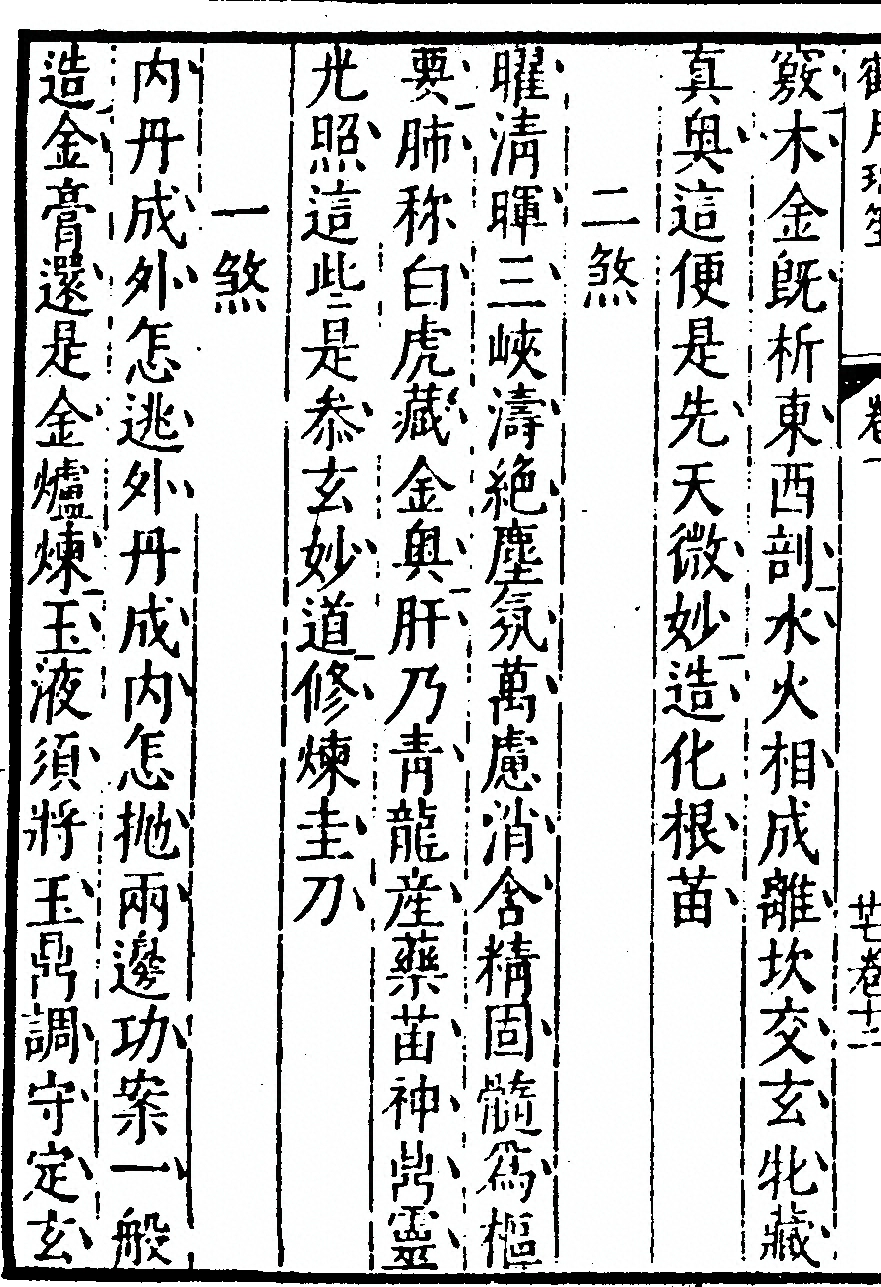 竅木金旣析東西剖水火相成離坎交玄牝藏
真奧這便是先天微妙造化根苗
二煞
曜淸暉三峽濤絕塵氛萬慮消含精固髓爲樞
要肺称白虎藏金奧肝乃靑龍産藥苗神鼎靈
光照這些是叅玄妙道修煉圭刀
一煞
内丹成外怎逃外丹成内怎抛兩邊功案一般
造金膏還是金爐煉玉液須將玉鼎調守定玄